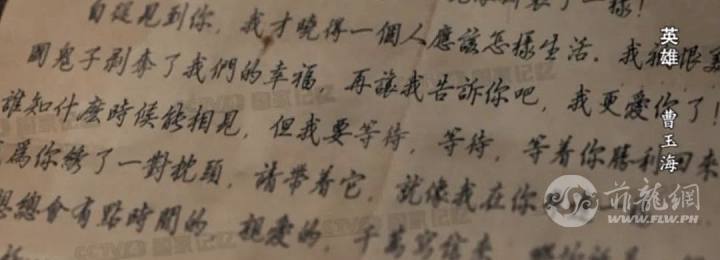 了一樣!
自從見到你,我才曉得一個人應該怎樣生活。我
國鬼子剥奪了我們的幸福,再讓我告訴你吧,我更愛你了!
誰知什麽時候能相見,但我要等待,等待,等着你勝利回來
爲你綉了一對枕頭,請帶着它,就像我在你
總會有點時間的 親愛的,千萬寫信來
英雄 曹玉海
菲龍網
WWW.FLW.PH